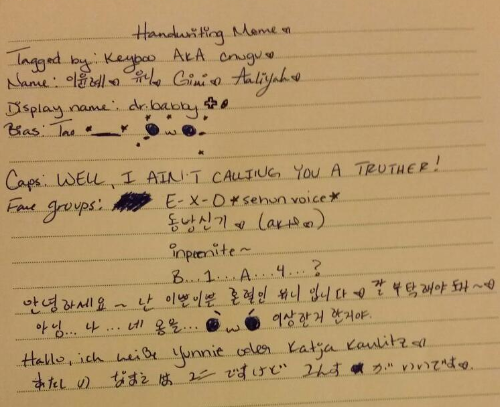 Handwriting Meme
Tagged by: Keyboo AKA cnugu
Name: 이윤혜 유니 Gimi Aaliyah
Display name: dr.babby
Bias: Tao *___*
Caps: WELL, I AIN'T CALLING YOU A TRUTHER!
Fave groups: E-X-O *sehun voice*
동방신기
infinite~
B...1...A...4...?
안녕하세요~ 난 이쁜이쁜 혼혈인 유니 입니다 잘 부탁해야 돼자~
아님... 나... 네 용을... ω 이상한거 한거야.
Hallo, ich heiße Yunnie oder Katja Kaulitz
わたし の なまえ は ユニ ですけど